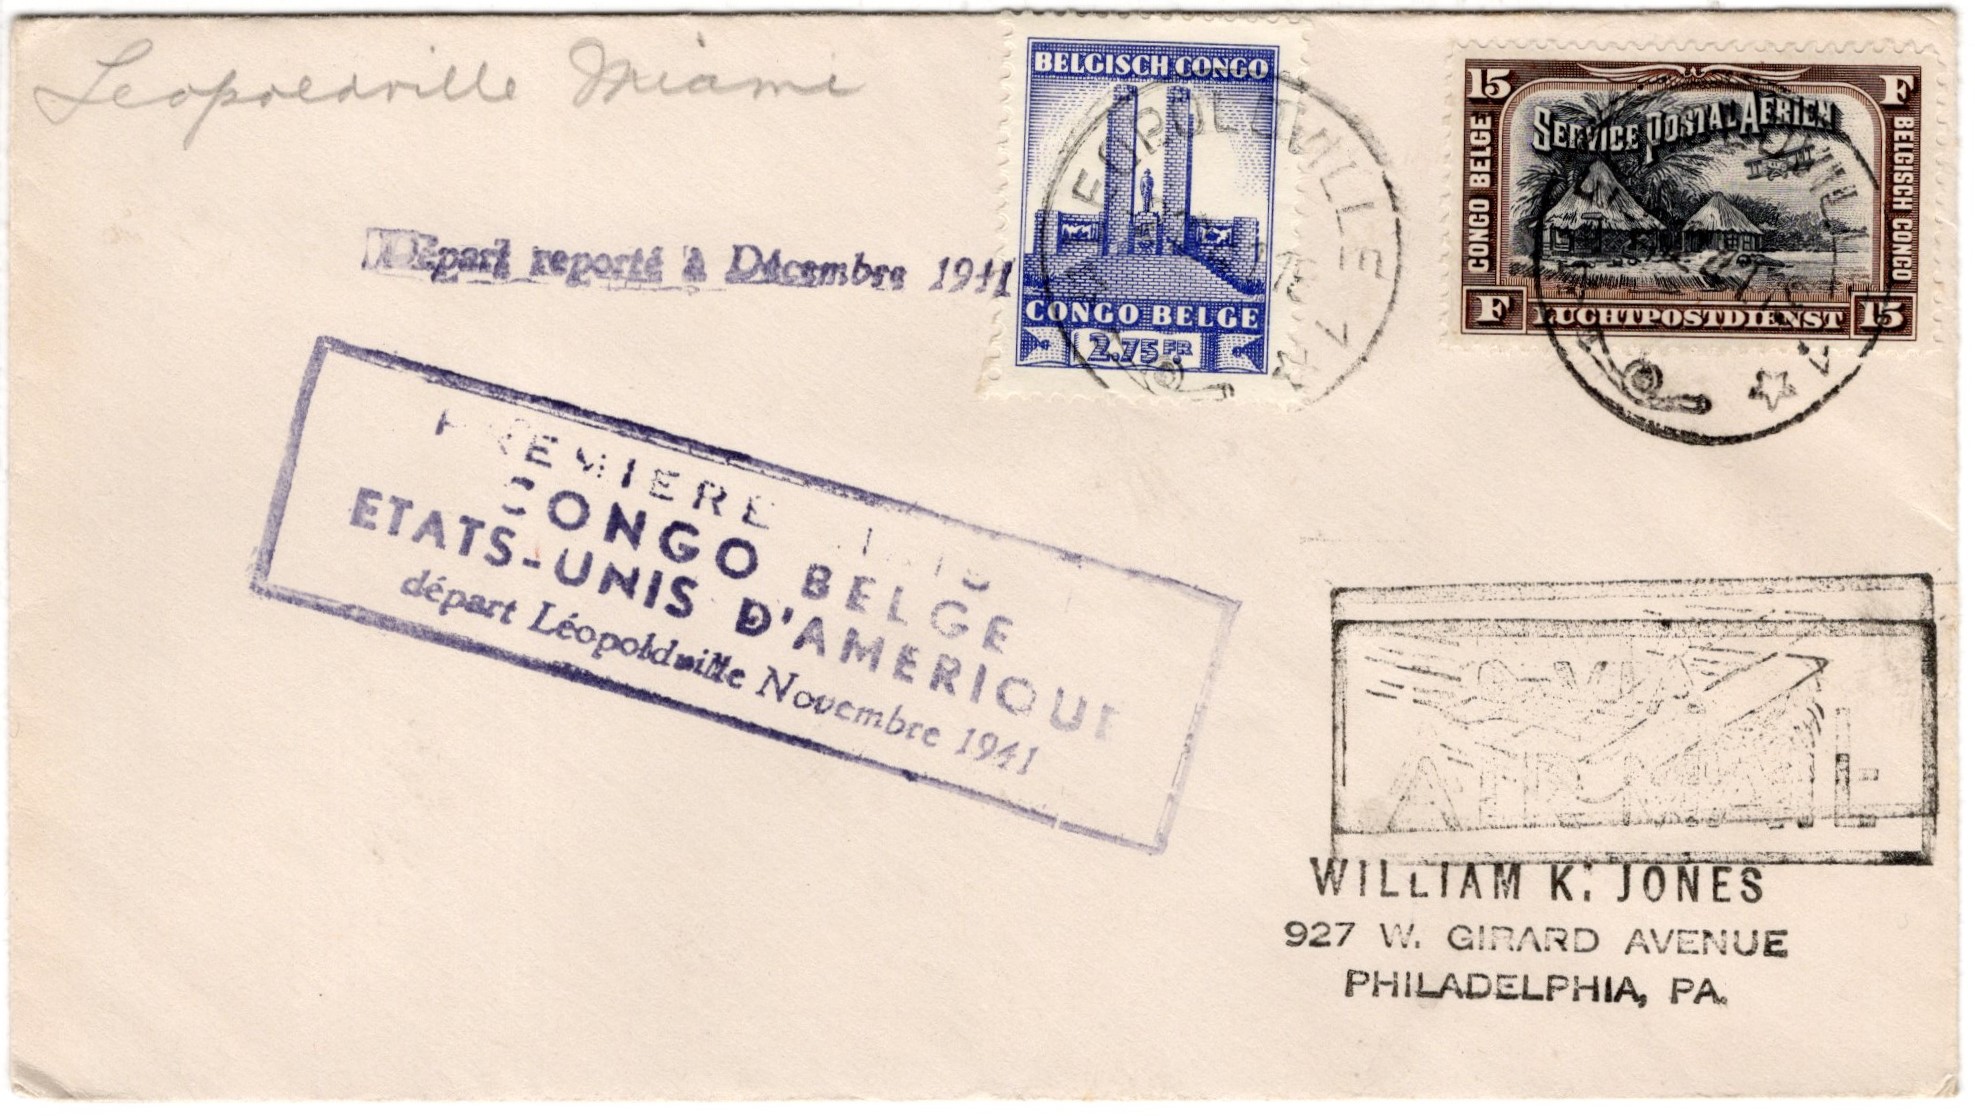 Leopoldville Miami
BELGISCH CONGO
CONGO BELGE
2.75 FR
15 F
SERVICE POSTAL AÉRIEN
CONGO BELGE
BELGISCH CONGO
F LUCHTPOSTDIENST 15
LEOPOLDVILLE 1
Départ reporté à Décembre 1941
PREMIERE
CONGO BELGE
ETATS-UNIS D'AMERIQUE
départ Léopoldville Novembre 1941
VIA
AIR MAIL
WILLIAM K. JONES
927 W. GIRARD AVENUE
PHILADELPHIA, PA.